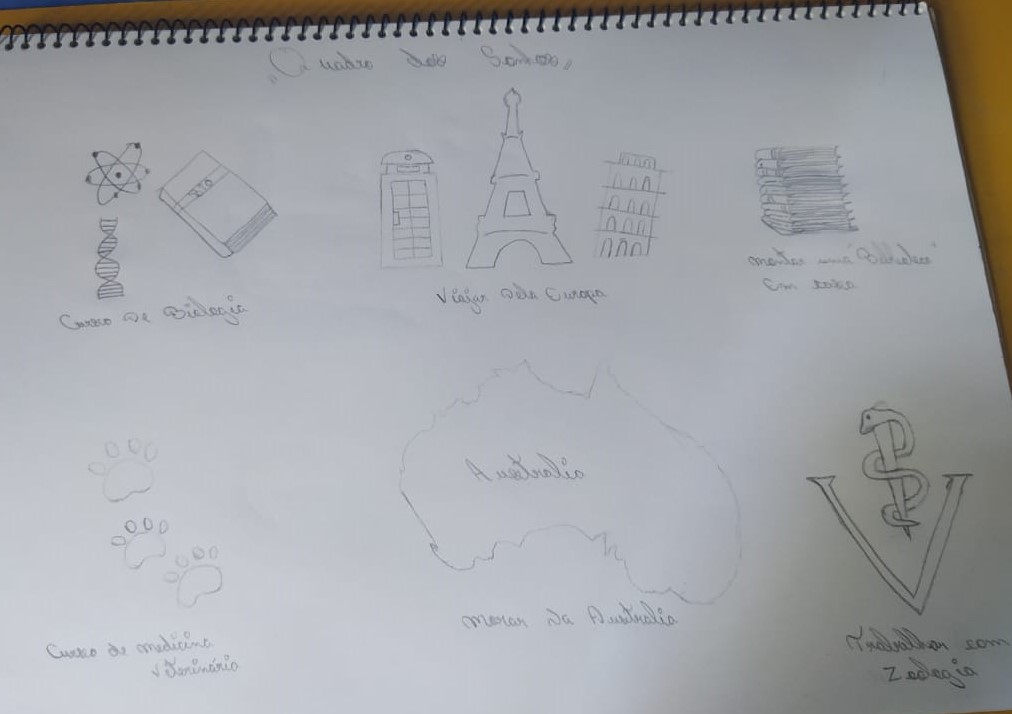 "Quadro dos Sonhos"
BIO
Curso de Biologia
Viajar Pela Europa
montar uma "Biblioteca"
Em casa
Australia
Curso de medicina
Veterinária
morar na Australia
Trabalhar com
Zoologia